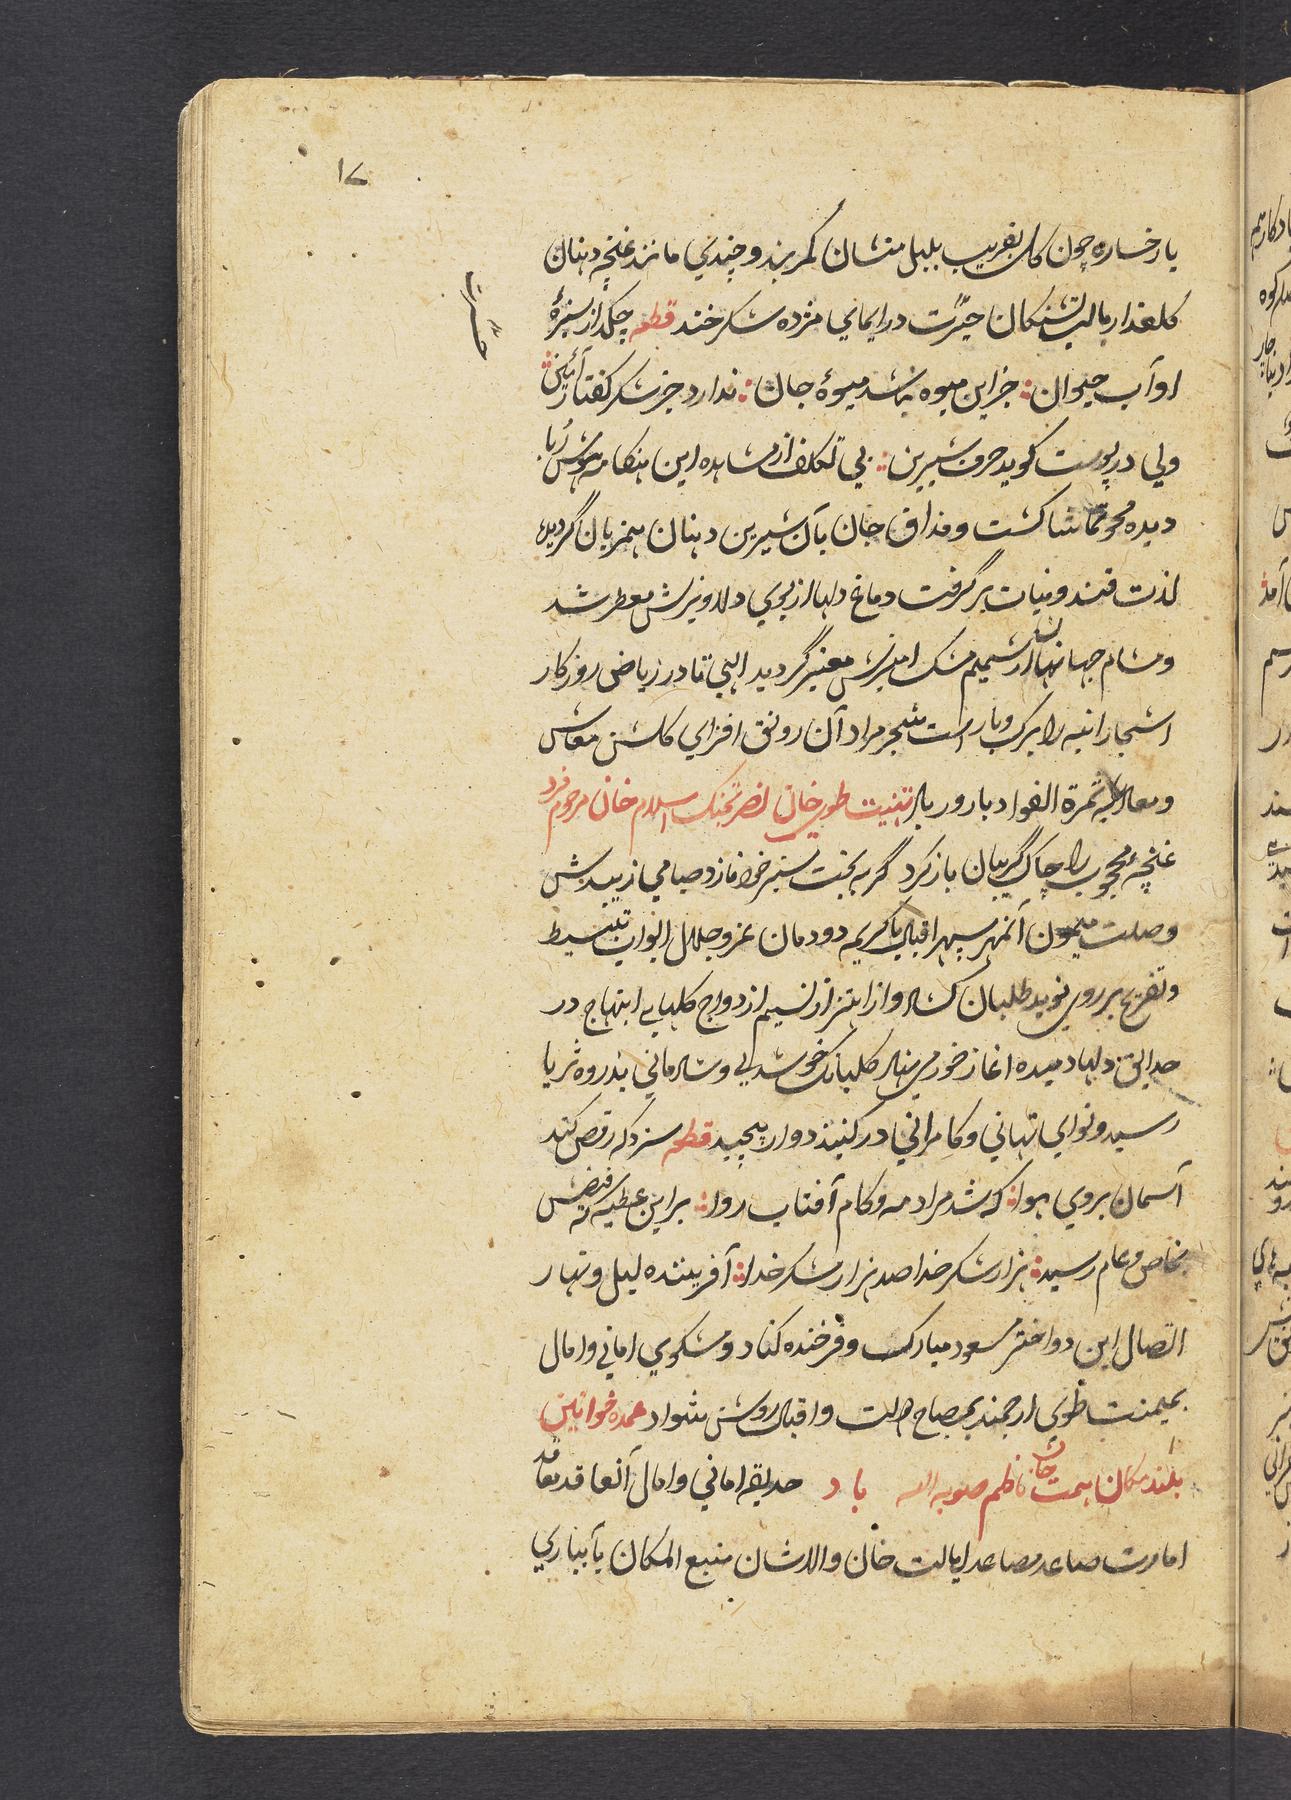 ۱۷
با رخساره چون گل بفریب بلبل منشان کمر بند و چندی مانند غنچه دهنان
گلعذار بالب تشنگان حیرت در ایمای مژده شکر خند قطعه چکد از سبزهٔ
او آب حیوان : جز این میوه نباشد میوهٔ جان : ندارد جز شکر گفتار آئین :
ولی در پوست گوید حرف شیرین : بی تکلف از مشاهده این هنگامه هوش ربا
دیده محو تماشا گشت و مذاق جان بآن شیرین دهنان همزبان گردیده
لذت قند و نبات برگرفت دماغ دلها از بوی دلاویزش معطر شد
و مشام جهانیان از شمیم مشک امیزش معنبر گردید الهی تا در ریاض روزگار
اشجار انبه را برک و بار است شجر مراد آن رونق افزای گلشن معاش
و معاد به ثمرة الفواد بارور باد تهنیت طوی خان نصرتجنک اسلام خان مرحوم فرد
غنچهٔ محجوب را چاک گریبان باز کرد گر به بخت سبز خود نازد صبا می زیبدش
وصلت میمون آنمهر سپهر اقبال با کریمه دودمان عز و جلال ابواب تبسیط
و تفریح بر روی نوید طلبان کشاد و از اهتزاز نسیم ازدواج گلهای ابتهاج در
حدایق دلها دمیده اغاز خورمی نهاد گلبانک خوشدلی و شادمانی بذروه ثریا
رسید و نوای تهانی و کامرانی در گنبد دوار پیچید قطعه سزد که رقص کند
آسمان بروی هوا : که شد مراد مه و کام آفتاب روا : براین عطیه که فیضش
بخاص و عام رسید : هزار شکر خدا صد هزار شکر خدا : آفریننده لیل و نهار
اتصال این دو اختر مسعود مبارک و فرخنده کناد و مشکوی امانی و امال
بمیمنت طوی ارجمند بمصباح دولت و اقبال روشن شواد عمده خوانین
بلند مکان همت خان ناظم صوبه اله باد حدیقه امانی و امال آنعاقد معاقد
امارت صاعد مصاعد ایالت خان والاشان منبع المکان بآبیاری